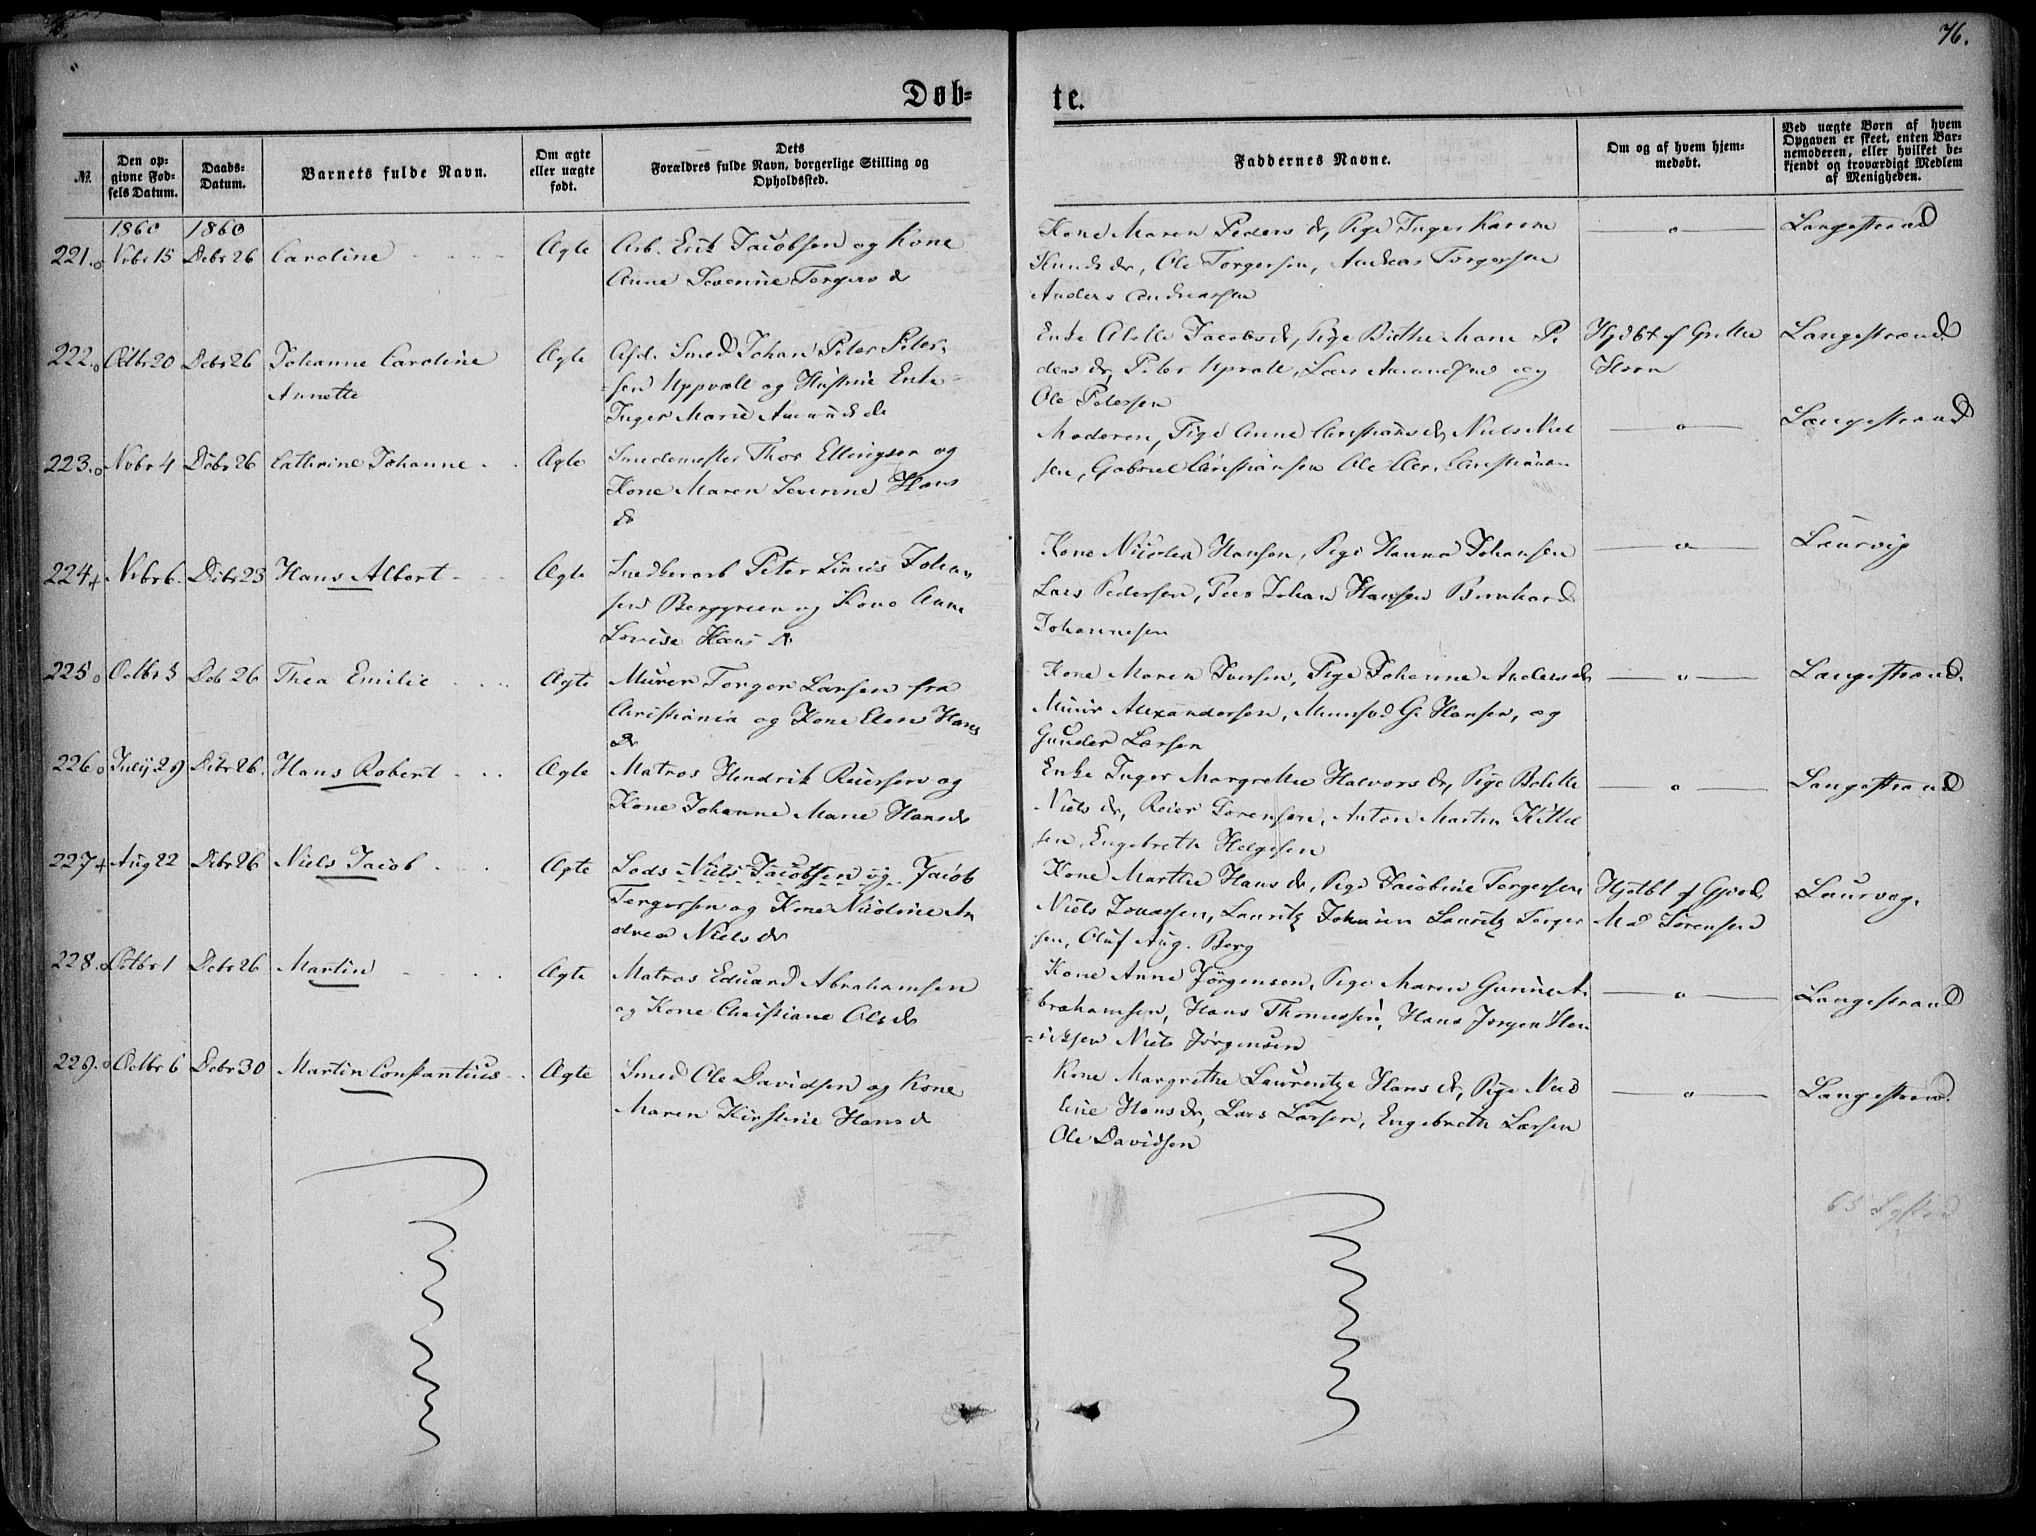 76.
Døb=
te.
№.
Den op=
givne Fød=
sels Datum.
Daabs=
Datum.
Barnets fulde Navn.
Om ægte
eller uægte
født.
Dets
Forældres fulde Navn, borgerlige Stilling og
Opholdssted.
Faddernes Navne.
Om og af hvem hjem=
medøbt.
Ved uægte Børn af hvem
Opgaven er skeet, enten Bar=
nemoderen, eller hvilket be=
kjendt og troværdigt Medlem
af Menigheden.
1860 1860
221. Nvbr 15 Debr 26 Caroline Ægte Arb. Erik Jacobsen og Kone
Anne Severine Torgers d
Kone Maren Peders dr, Pige Inger Karine
Knuds dr, Ole Torgersen, Andreas Torgersen
Anders Andreassen
—o— Langestrand
222. Octbr 20 Debr 26 Johanne Caroline
Annette
Ægte Afd. Smed Johan Peter Peter=
sen Uppvall og Hustrue Enke
Inger Marie Amunds dr
Enke Abelle Jacobs d, Pige Birthe Marie Pe
ders dr, Peter Upvall, Lars Amundsen og
Ole Pedersen
Hjdbt af Grethe
Horn
Langestrand
223. Nvbr 4 Debr 26 Cathrine Johanne Ægte Smedemester Thor Ellingsen og
Kone Maren Severine Hans
dr
Moderen, Pige Anne Christians dr, Niels Niel
sen, Gabriel Christiansen Ole Chr. Christiansen
—o— Langestrand
224+ Nvbr 6. Debr 23 Hans Albert Ægte Snedkerarb Peter Linius Johan
sen Berggreen og Kone Anne
Lovise Hans dr
Kone Nicolea Hansen, Pige Hanna Johansen
Lars Pedersen, Peer Johan Hansen Bernhard
Johannesen
—o— Laurvig
225 Octbr 3 Deb 26 Thea Emilie Ægte Murer Torger Larsen fra
Christiania og Kone Elen Hans
dr
Kone Maren Jensen, Pige Johanne Anders dr
Murer Alexandersen, G. Hansen, og
Gunder Larsen
—o— Langestrand.
226. July 29 Debr 26. Hans Robert Ægte Matros Hendrik Reiersen og
Kone Johanne Marie Hans dr
Enke Inger Margrethe Halvors dr, Pige Bolette
Niels dr, Reier Sørensen, Anton Martin Kittel
sen, Engebreth Helgesen
—o— Langestrand
227+ Aug 22 Debr 26 Niels Jacob Ægte Lods Niels Jacobsen og Jacob
Torgersen og Kone Nicoline An
drea Niels dr
Kone Marthe Hans dr, Pige Jacobine Torgersen,
Niels Jonassen, Lauritz Johnsen Lauritz Torger
sen, Oluf Aug. Berg
Hjdbt af Gjord
Md Sørensen
Laurvig.
228. Octbr 1 Debr 26 Martin Ægte Matros Eduard Abrahamsen
og Kone Christiane Ols dr
Kone Anne Jörgensen, Pige Maren Gurine A.
brahamsen, Hans Thomessen, Hans Jörgen Hen
ricksen Niels Jörgensen
—o— Langestrand
229. Octbr 6 Debr 30 Martin Constantius Ægte Smed Ole Davidsen og Kone
Maren Kirstine Hans d
Kone Margrethe Laurentze Hans dr, Pige Nico
line Hans dr, Lars Larsen, Engebreth Larsen
Ole Davidsen
—o— Langestrand.
65